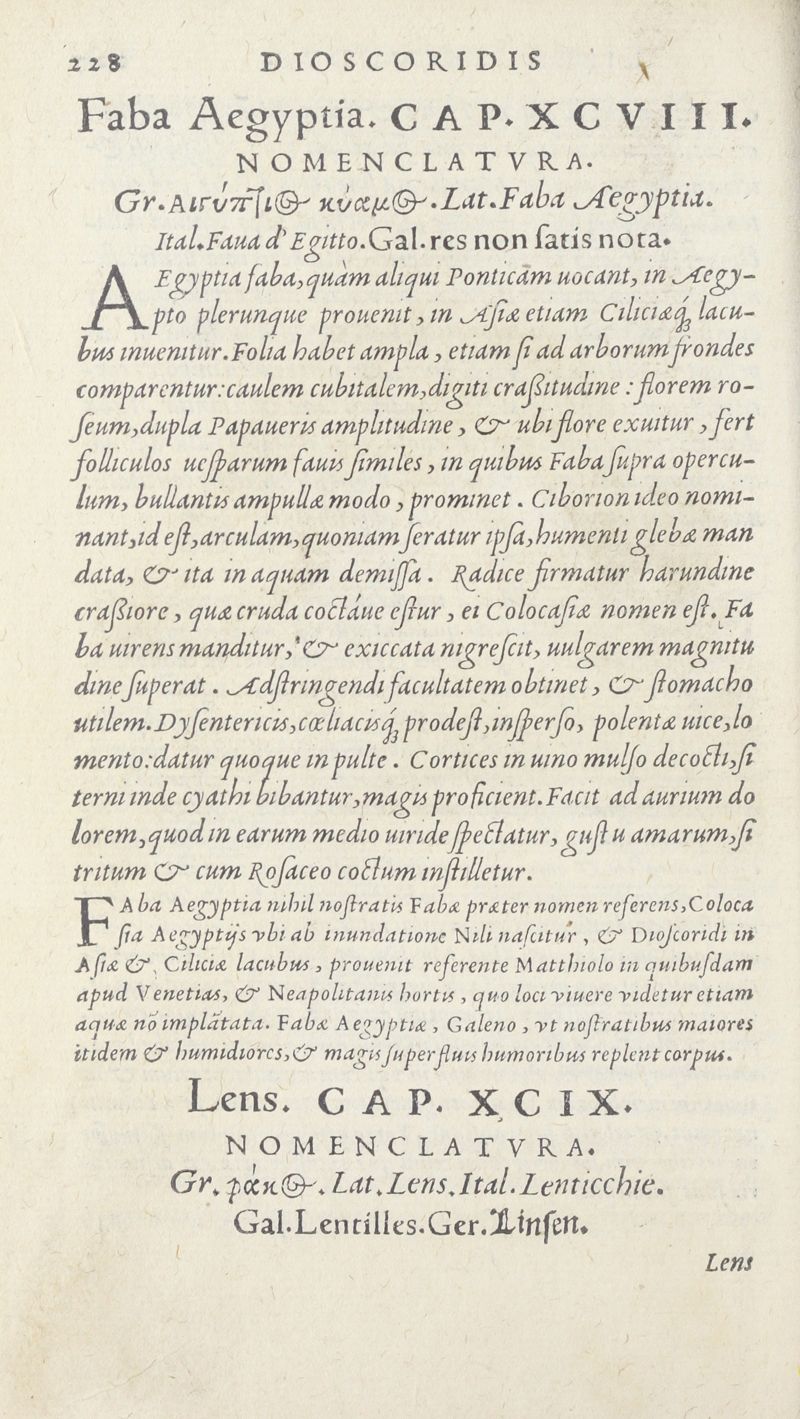 228 DIOSCORIDIS
Faba Aegyptia. CAP. XCVIII.
NOMENCLATVRA.
Gr. Αιγύπτιος κύαμος. Lat. Faba Aegyptia.
Ital. Faua d' Egitto. Gal. res non satis nota.
AEgyptia faba, quàm aliqui Ponticam uocant, in Aegy-
pto plerunque prouenit, in Asia etiam Ciliciaeq́; lacu-
bus inuenitur. Folia habet ampla, etiam si ad arborum frondes
comparentur: caulem cubitalem, digiti craßitudine: florem ro-
seum, dupla Papaueris amplitudine, & ubi flore exuitur, fert
folliculos uesparum fauis similes, in quibus Faba supra opercu-
lum, bullantis ampullæ modo, prominet. Ciborion ideo nomi-
nant, id est, arculam, quoniam seratur ipsa, humenti glebæ man
data, & ita in aquam demissa. Radice firmatur harundine
craßiore, quæ cruda coctáue estur, ei Colocasiæ nomen est. Fa
ba uirens manditur, & exiccata nigrescit, uulgarem magnitu
dine superat. Adstringendi facultatem obtinet, & stomacho
utilem. Dysentericis, cœliacisq́; prodest, insperso, polentæ uice, lo
mento: datur quoque in pulte. Cortices in uino mulso decocti, si
terni inde cyathi bibantur, magis proficient. Facit ad aurium do
lorem, quod in earum medio uiride spectatur, gustu amarum, si
tritum & cum Rosaceo coctum instilletur.
FAba Aegyptia nihil nostratis Fabæ præter nomen referens, Coloca
sia Aegyptijs vbi ab inundatione Nili nascitur, & Dioscoridi in
Asiæ &, Ciliciæ lacubus, prouenit referente Matthiolo in quibusdam
apud Venetias, & Neapolitanis hortis, quo loci viuere videtur etiam
aquæ nō implātata. Fabæ Aegyptiæ, Galeno, vt nostratibus maiores
itidem & humidiores, & magis superfluis humoribus replent corpus.
Lens. CAP. XCIX.
NOMENCLATVRA.
Gr. φάκος. Lat. Lens. Ital. Lenticchie.
Gal. Lentilles. Ger. Linsen.
Lens